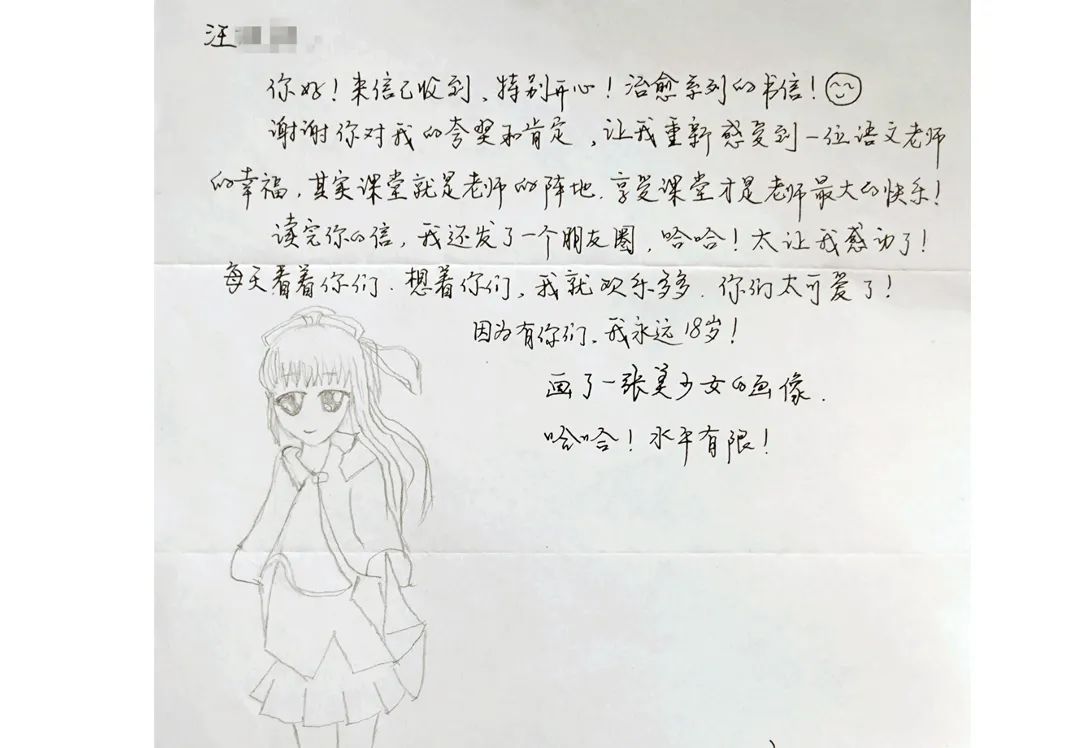 汪
你好！来信已收到、特别开心！治愈系列的书信！
谢谢你对我的夸奖和肯定，让我重新感受到一位语文老师
的幸福，其实课堂就是老师的阵地.享受课堂才是老师最大的快乐！
读完你的信，我还发了一个朋友圈，哈哈！太让我感动了！
每天看着你们.想着你们、我就欢乐多多.你们太可爱了！
因为有你们、我永远18岁！
画了一张美少女的画像.
哈哈！水平有限！